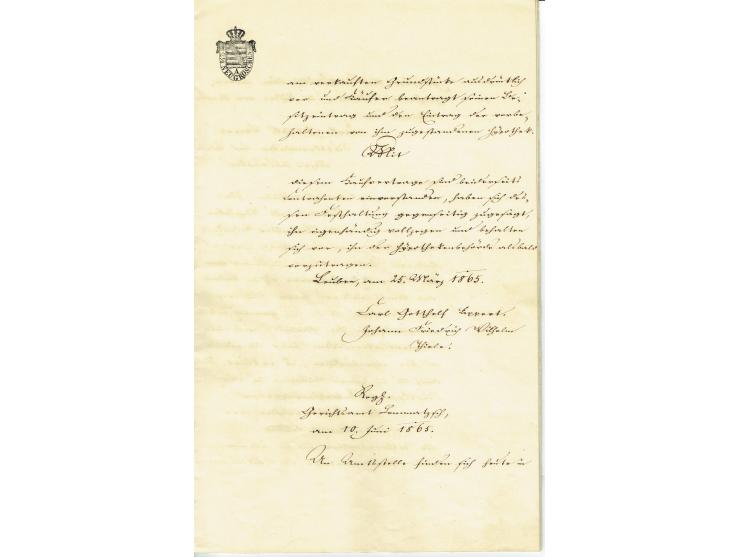 NEUGROSCHEN
am verkauften Grundstücke ausdrücklich
vor und Käufer beantragt seinen Be-
sitzeintrag und den Eintrag der vorbe-
haltenen von ihm zugestandenen Hypothek.
Mit
diesem Kaufvertrage sind beiderseits
Contrahenten einverstanden, haben sich des-
sen Festhaltung gegenseitig zugesagt,
ihn eigenhändig vollzogen und behalten
sich vor, ihn der Hypothekenbehörde alsbald
vorzutragen.
Leuben, am 25. März 1865.
Carl Gotthelf
Johann Friedrich Wilhelm
Thiele.
Regs.
Gerichtsamt Lommatzsch,
am 10. Juni 1865.
An Amtsstelle finden sich heute in